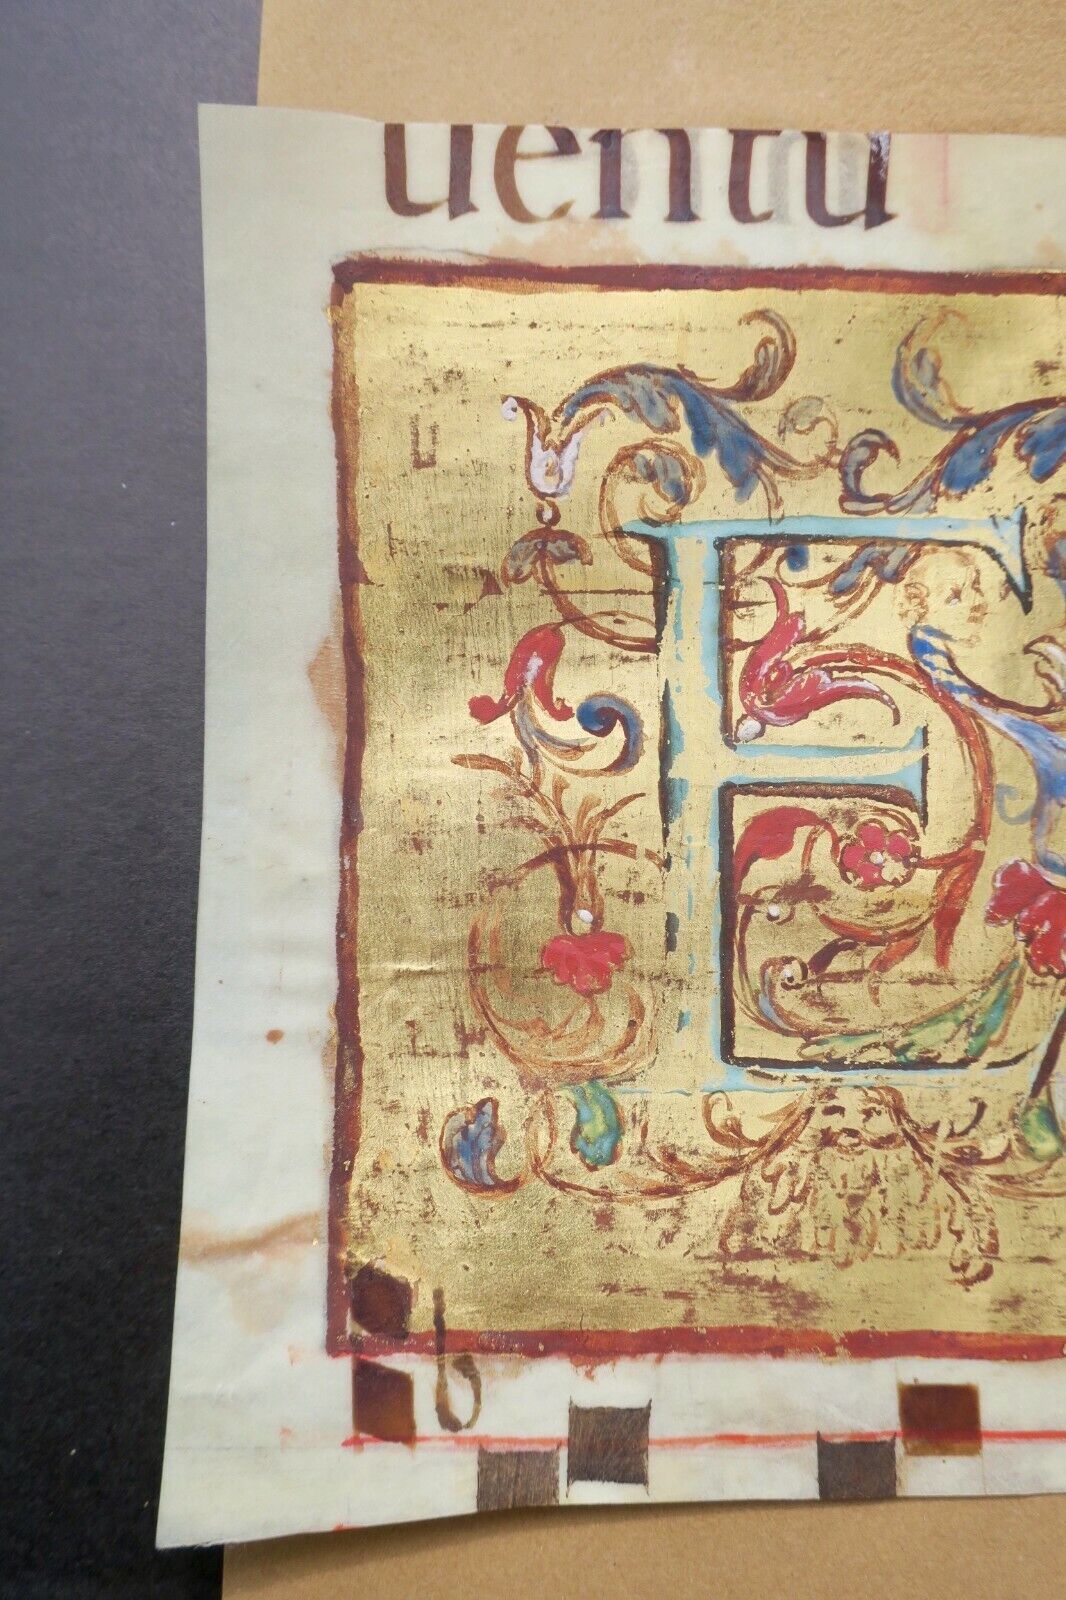 uentu
E
b